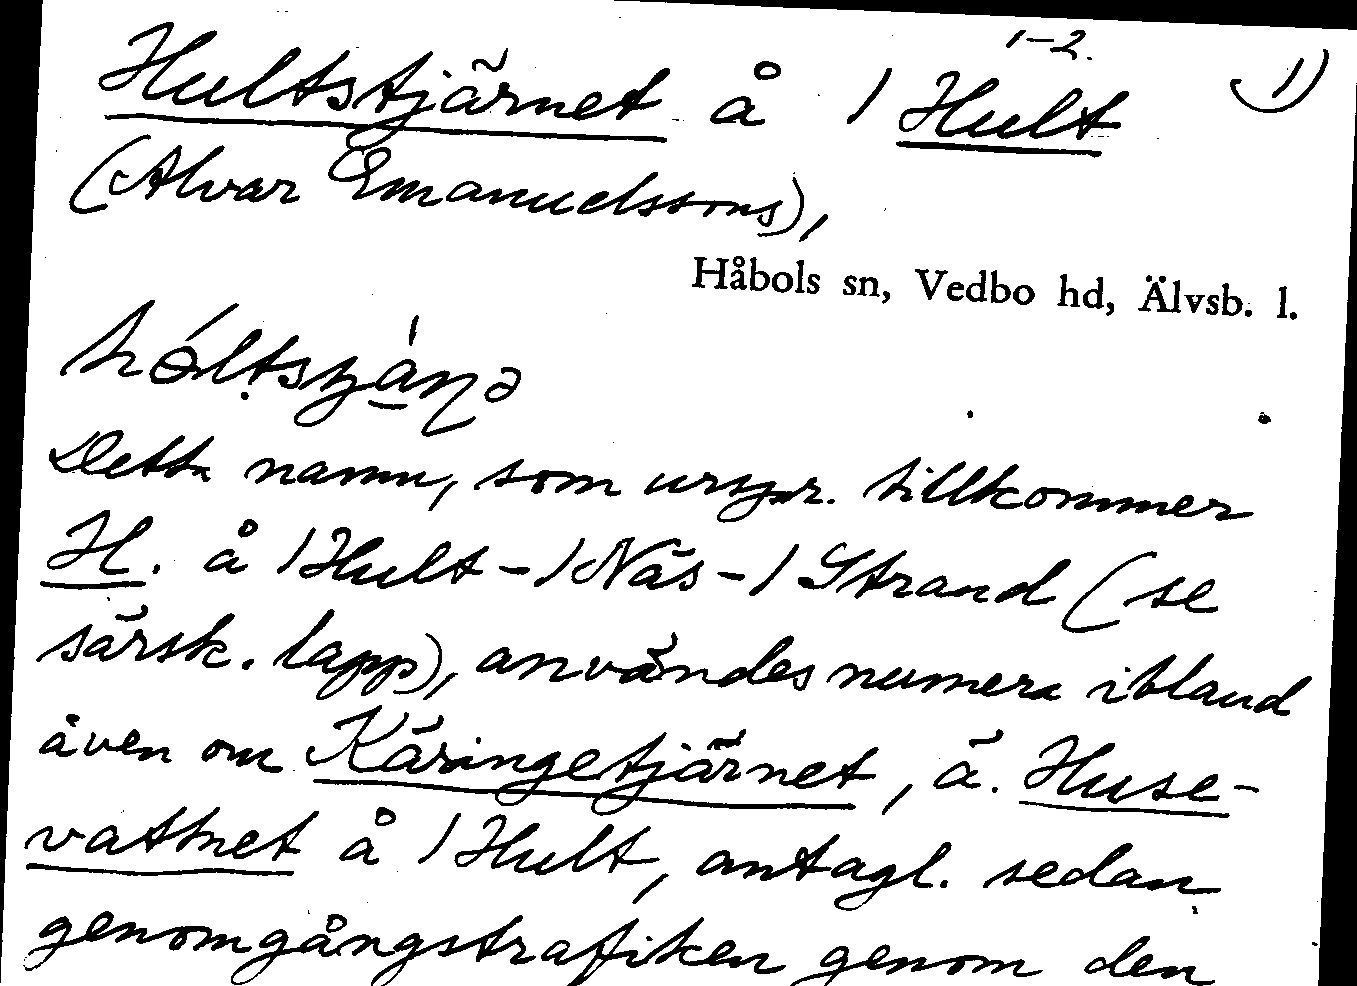 1-2.
Hultstjärnet å / Hult 1)
(Alvar Emanuelssons),
Håbols sn, Vedbo hd, Älvsb. l.
Detta namn, som urspr. tillkommer
H. å /Hult-/Näs-/Strand (se
särsk. lapp), användes numera ibland
även om Käringetjärnet, ä. Huse-
vattnet å /Hult, antagl. sedan
genomgångstrafiken genom den